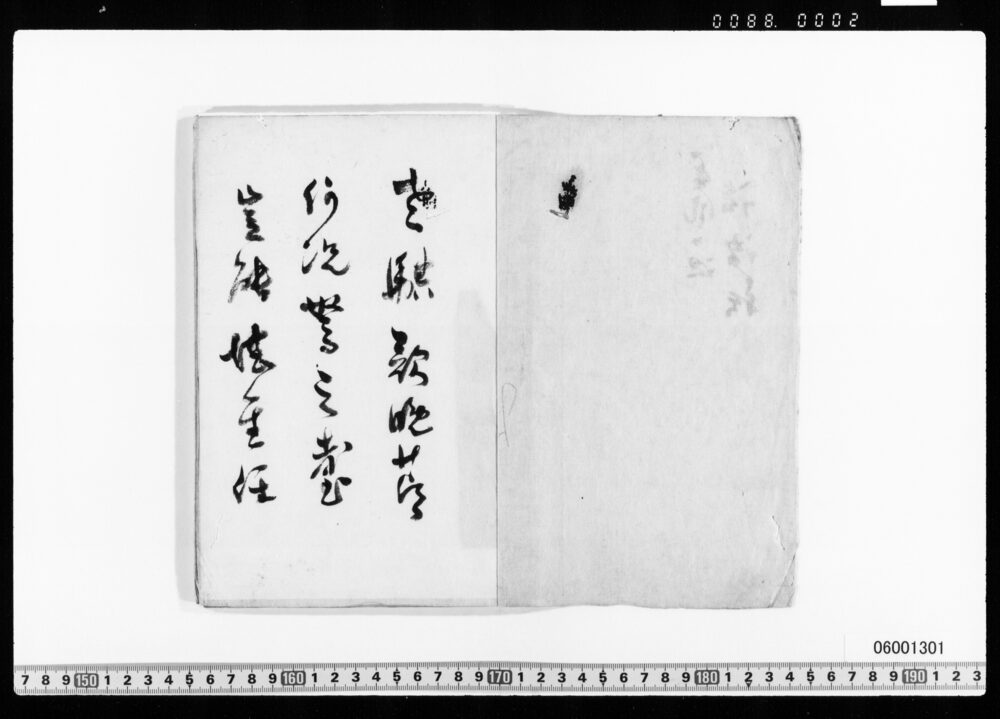 0088. 0002
老驥歎晩節
何況駑之
豈能堪重任
06001301
7 8 9 150 1 2 3 4 5 6 7 8 9 160 1 2 3 4 5 6 7 8 9 170 1 2 3 4 5 6 7 8 9 180 1 2 3 4 5 6 7 8 9 190 1 2 3